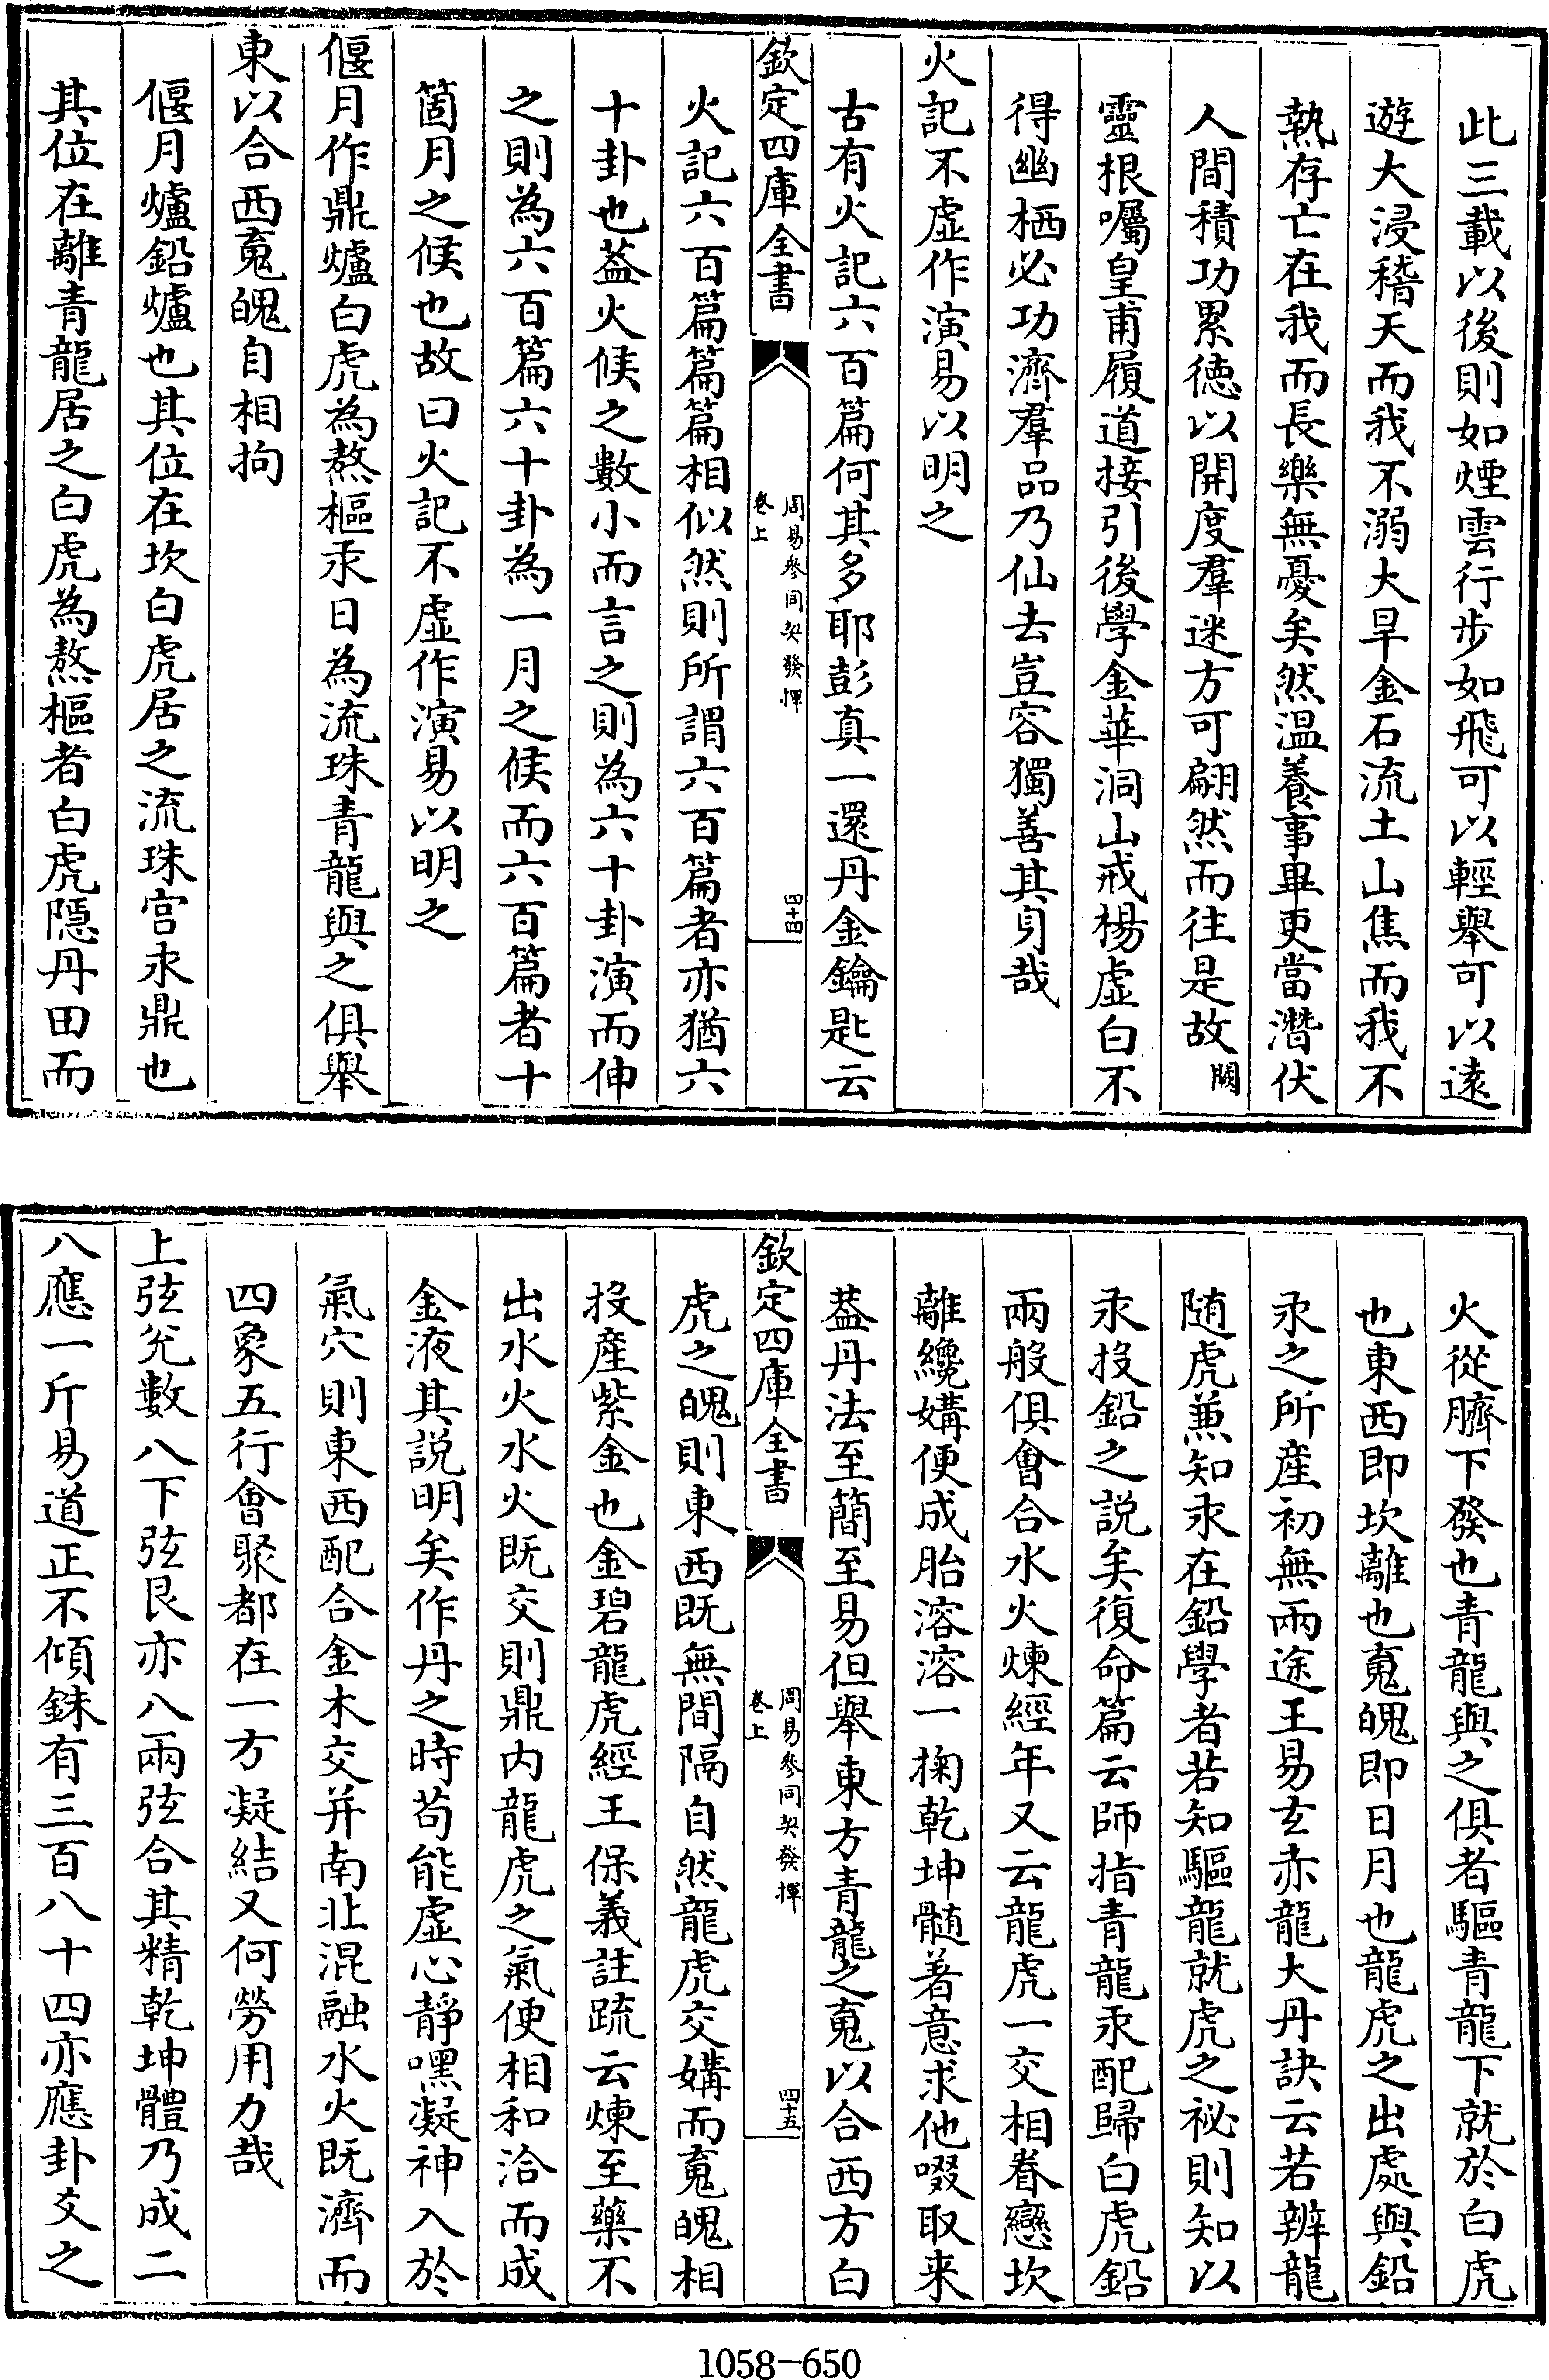 此三載以後則如煙雲行步如飛可以輕舉可以遠
遊大浸稽天而我不溺大旱金石流土山焦而我不
熱存亡在我而長樂無憂矣然温養事畢更當潛伏
人間積功累徳以開度羣迷方可翩然而往是故闕
靈根囑皇甫履道接引後學金華洞山戒楊虚白不
得幽栖必功濟羣品乃仙去豈容獨善其身哉
火記不虚作演易以明之
古有火記六百篇何其多耶彭真一還丹金鑰匙云
欽定四庫全書
周易參同契發揮
卷上
四十四
火記六百篇篇篇相似然則所謂六百篇者亦猶六
十卦也葢火候之數小而言之則為六十卦演而伸
之則為六百篇六十卦為一月之候而六百篇者十
箇月之候也故曰火記不虚作演易以明之
偃月作鼎爐白虎為熬樞汞日為流珠青龍與之俱舉
東以合西䰟魄自相拘
偃月爐鉛爐也其位在坎白虎居之流珠宫汞鼎也
其位在離青龍居之白虎為熬樞者白虎隠丹田而
火從臍下發也青龍與之俱者驅青龍下就於白虎
也東西即坎離也䰟魄即日月也龍虎之出處與鉛
汞之所産初無兩途王易玄赤龍大丹訣云若辨龍
随虎兼知汞在鉛學者若知驅龍就虎之祕則知以
汞投鉛之説矣復命篇云師指青龍汞配歸白虎鉛
兩般俱會合水火煉經年又云龍虎一交相眷戀坎
離纔媾便成胎溶溶一掬乾坤髄着意求他啜取来
葢丹法至簡至易但舉東方青龍之䰟以合西方白
欽定四庫全書
周易參同契發揮
卷上
四十五
虎之魄則東西既無間隔自然龍虎交媾而䰟魄相
投產紫金也金碧龍虎經王保義註疏云煉至藥不
出水火水火既交則鼎内龍虎之氣便相和洽而成
金液其説明矣作丹之時苟能虚心靜嘿凝神入於
氣穴則東西配合金木交并南北混融水火既濟而
四象五行會聚都在一方凝結又何勞用力哉
上弦兊數八下弦艮亦八兩弦合其精乾坤體乃成二
八應一斤易道正不傾銖有三百八十四亦應卦爻之
1058-650